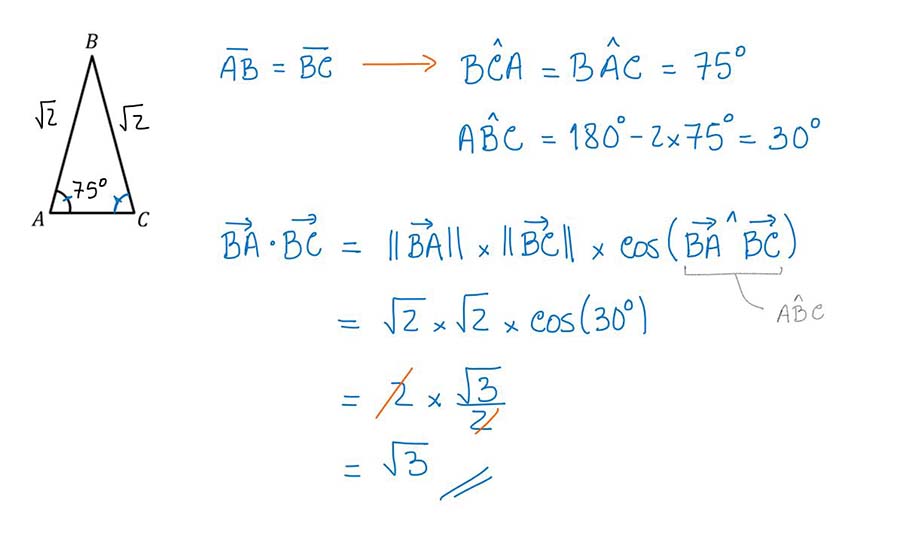 B
√2 √2
75°
A C
AB̅ = BC̅ → BĈA = BÂC = 75°
AB̂C = 180° - 2×75° = 30°
BA⃗ · BC⃗ = ||BA⃗|| × ||BC⃗|| × cos(BA⃗ ^ BC⃗)
AB̂C
= √2 × √2 × cos(30°)
= 2 × √3/2
= √3 //